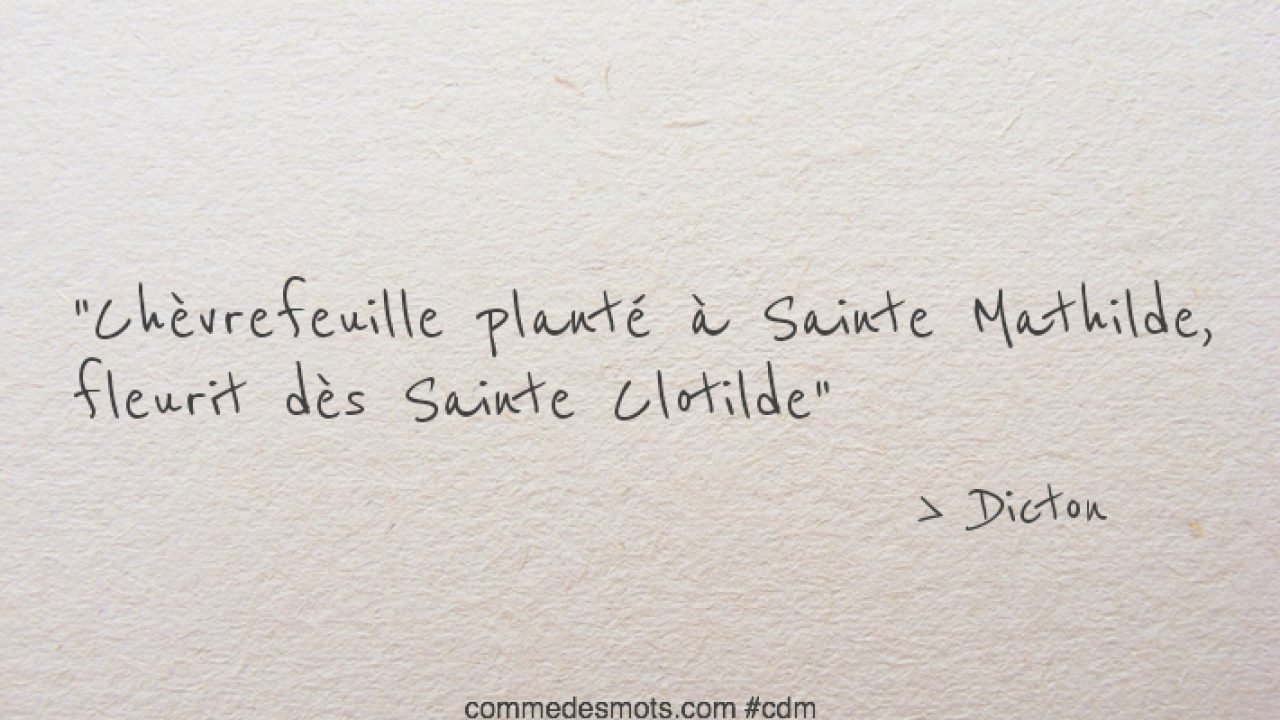 "Chèvrefeuille planté à Sainte Mathilde,
fleurit dès Sainte Clotilde"
> Dicton
commedesmots.com #cdm